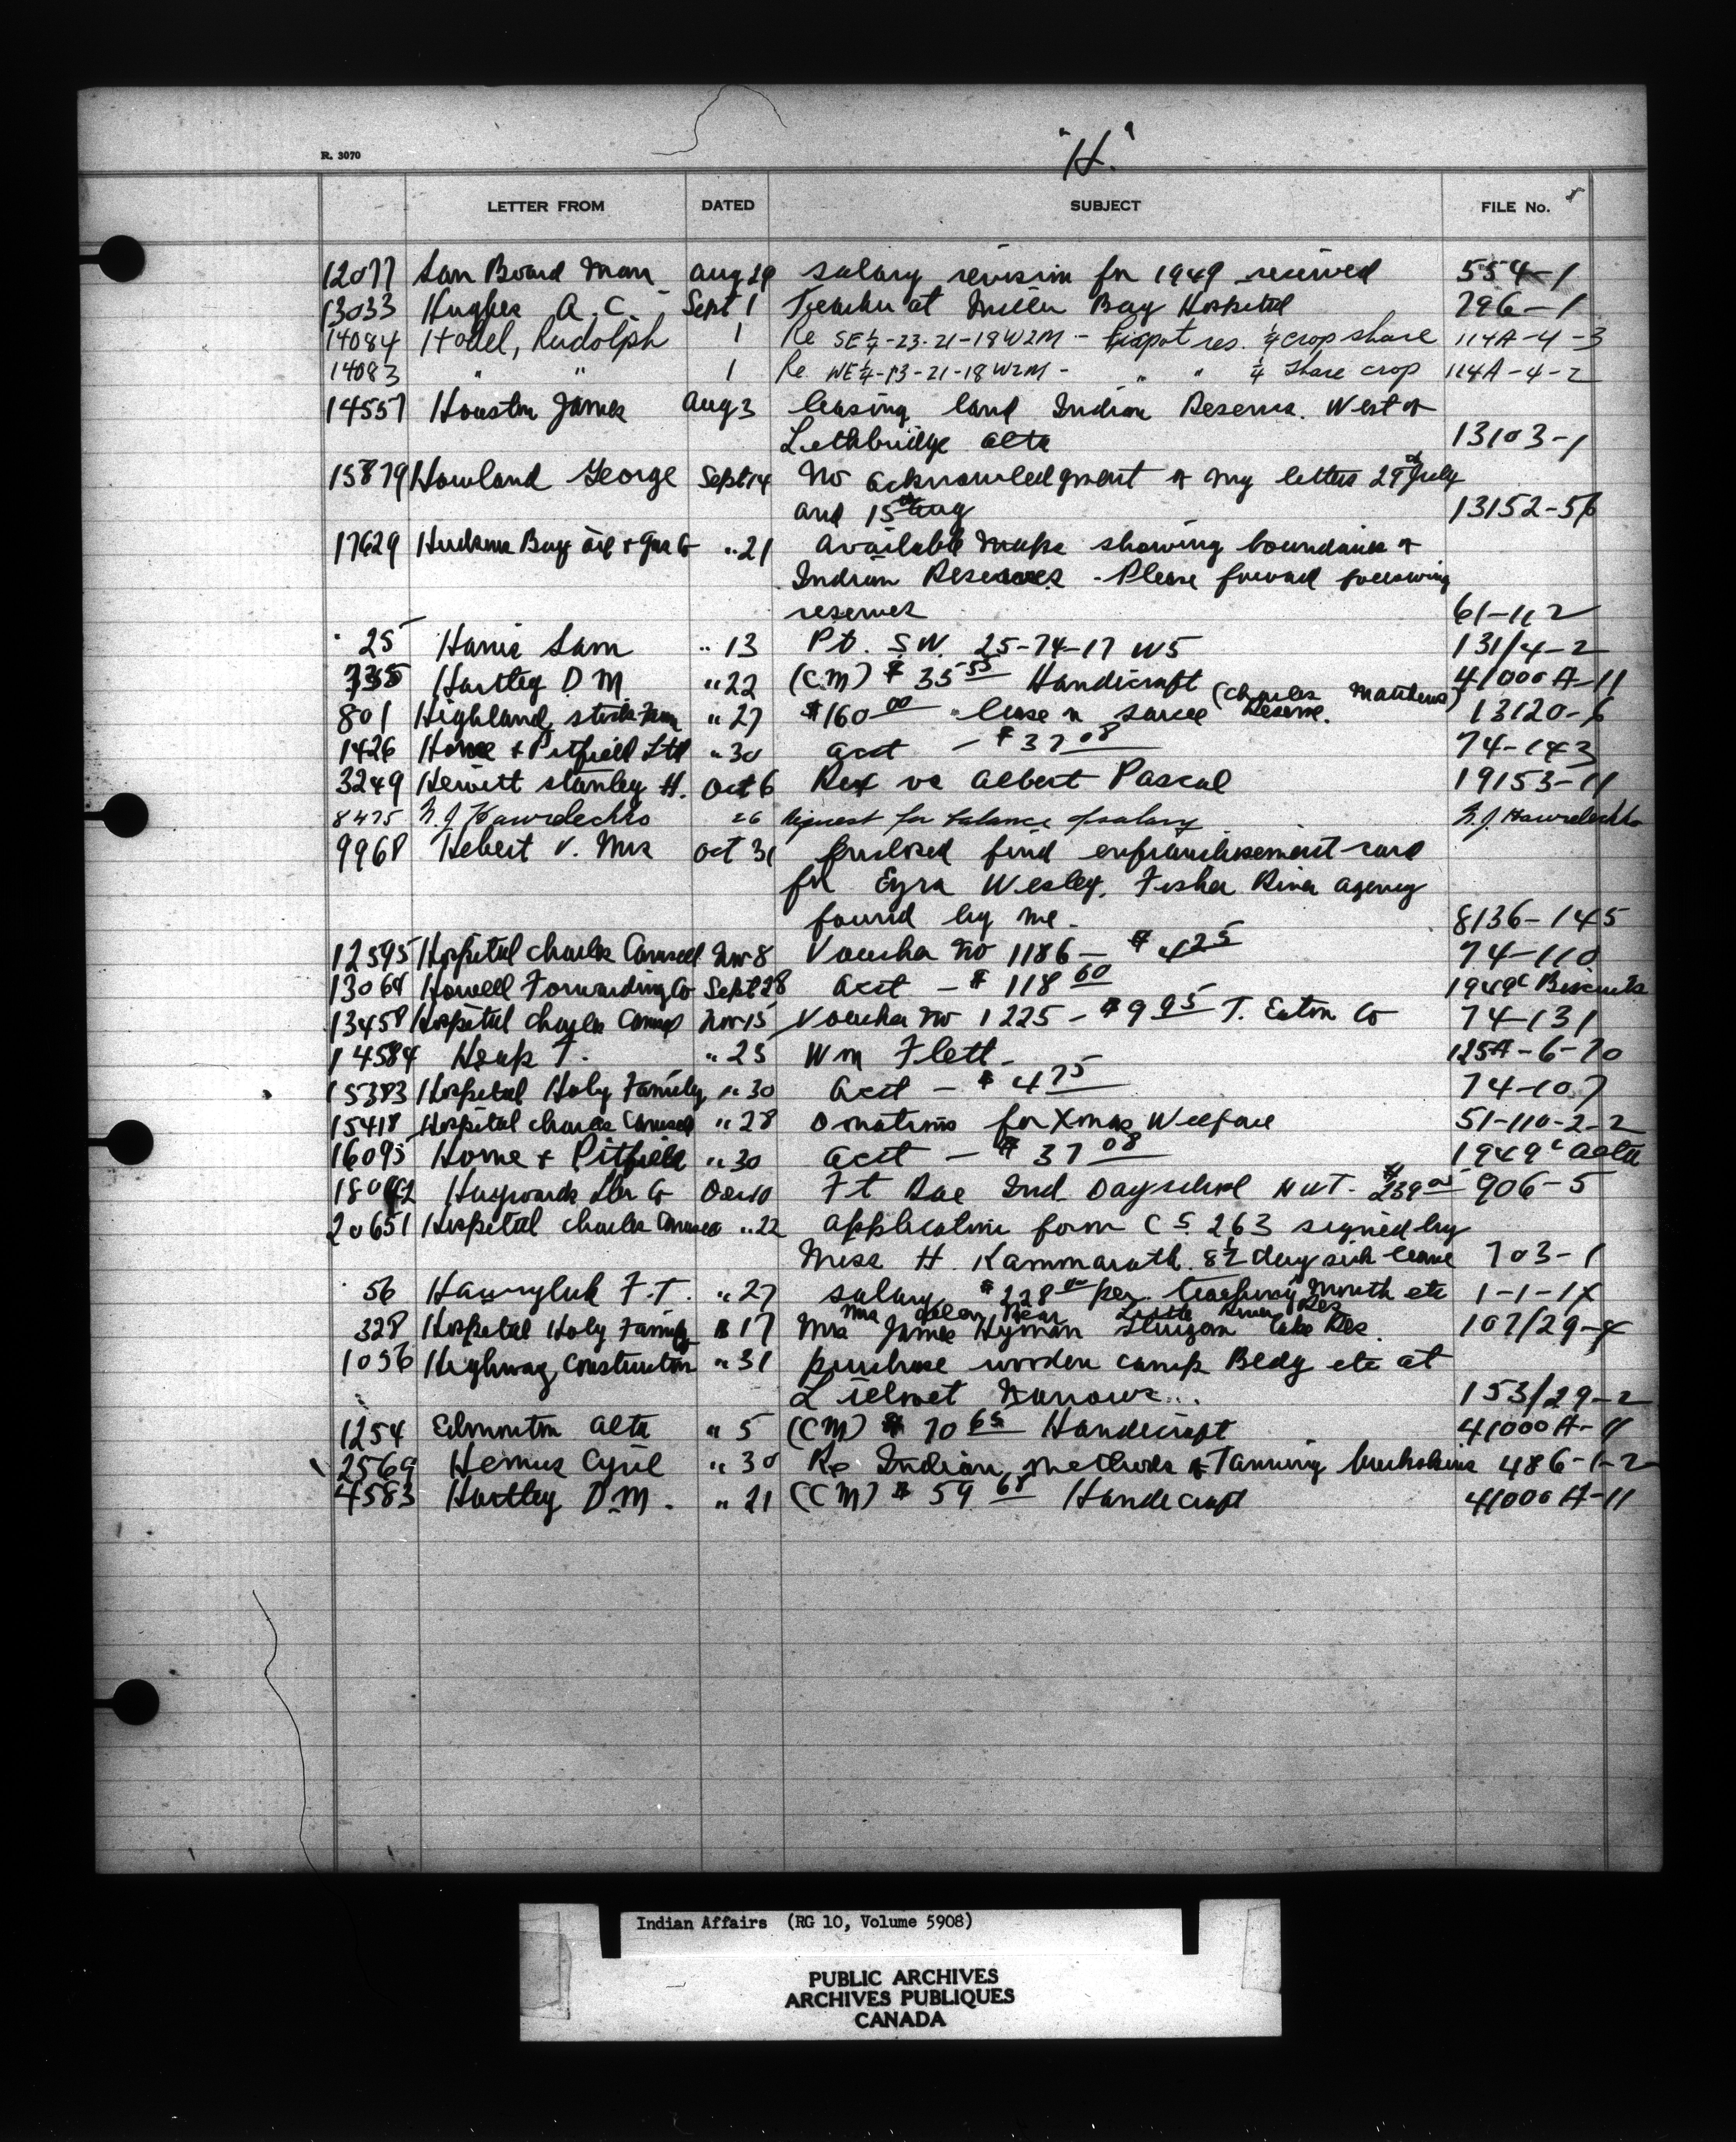 "H."
R. 3070
LETTER FROM DATED SUBJECT FILE No.
12077 San Board Man Aug 29 salary revision for 1949 received 554-1
13033 Hughes A. C. Sept 1 Teacher at Miller Bay Hospital 296-1
14084 Hodel, Rudolph 1 Re SE¼-23-21-18W2M - Piapot res. ¼ crop share 114A-4-3
14083 " " 1 Re WE¼-13-21-18W2M - " " ¼ Share crop 114A-4-2
14557 Houston James Aug 3 leasing land Indian Reserve. West of
Lethbridge Alta 13103-1
15879 Howland George Sept 14 No acknowledgment of my letters 29th July
and 15th Aug 13152-56
17629 Hudsons Bay Oil & Gas Co " 21 Available maps showing boundaries of
Indian Reserves - Please forward following
reserves 61-1-2
25 Harris Sam " 13 Pt. S.W. 25-74-17 W5 131/4-2
735 Hartley D M. " 22 (CM) $35 55 Handicraft 41000 A-11
801 Highland stock Farm " 27 $160 00 lease n Sarcee Reserve. (Charles Matthews) 13120-6
1426 Horne & Pitfield Ltd " 30 acct - $37 08 74-143
3249 Hewitt Stanley H. Oct 6 Rex vs Albert Pascal 19153-11
8475 26 Request for balance of salary
9968 Hebert V. Mrs Oct 31 Enclosed find enfranchisement card
for Ezra Wesley, Fisher River Agency
found by me - 8136-145
12595 Hospital Charles Camsell Nov 8 Voucher No 1186 - $ 4 25 74-110
13064 Howell Forwarding Co Sept 28 acct - $ 118 60 1949c Biscuits
13458 Hospital Charles Camsell Nov 15 Voucher No 1225 - $9 95 T. Eaton Co 74-131
14584 T. " 25 Wm Flett - 125A-6-20
15383 Hospital Holy Family " 30 acct - $ 4 75 74-107
15418 Hospital Charles Camsell " 28 Donations for Xmas Welfare 51-110-2-2
16095 Horne & Pitfield " 30 acct - $ 37 08 1949c
18042 Haywards Lbr Co Dec 10 Ft Rae Ind. Day school N W T. $239 05 906-5
20651 Hospital Charles Camsell " 22 application form C S. 263 signed by
Miss H. Kammarath. 8½ day sick leave 703-1
56 Hawryluk F. T. " 27 salary $228 00 per teaching month etc 1-1-17
328 Hospital Holy Family " 17 Mrs James Hyman Sturgeon Lake Res. Mrs Bear Little River Res 107/29-4
1056 Highway Construction " 31 purchase wooden camp Bldg etc at
Narrows... 153/29-2
1254 Edmonton Alta " 5 (CM) $ 70 65 Handicraft 41000 A-11
2569 Hemus Cyril " 30 Re Indian methods of Tanning buckskins 486-1-2
4583 Hartley D.M. " 21 (CM) $ 59 68 Handicraft 41000 A-11
Indian Affairs (RG 10, Volume 5908)
PUBLIC ARCHIVES
ARCHIVES PUBLIQUES
CANADA